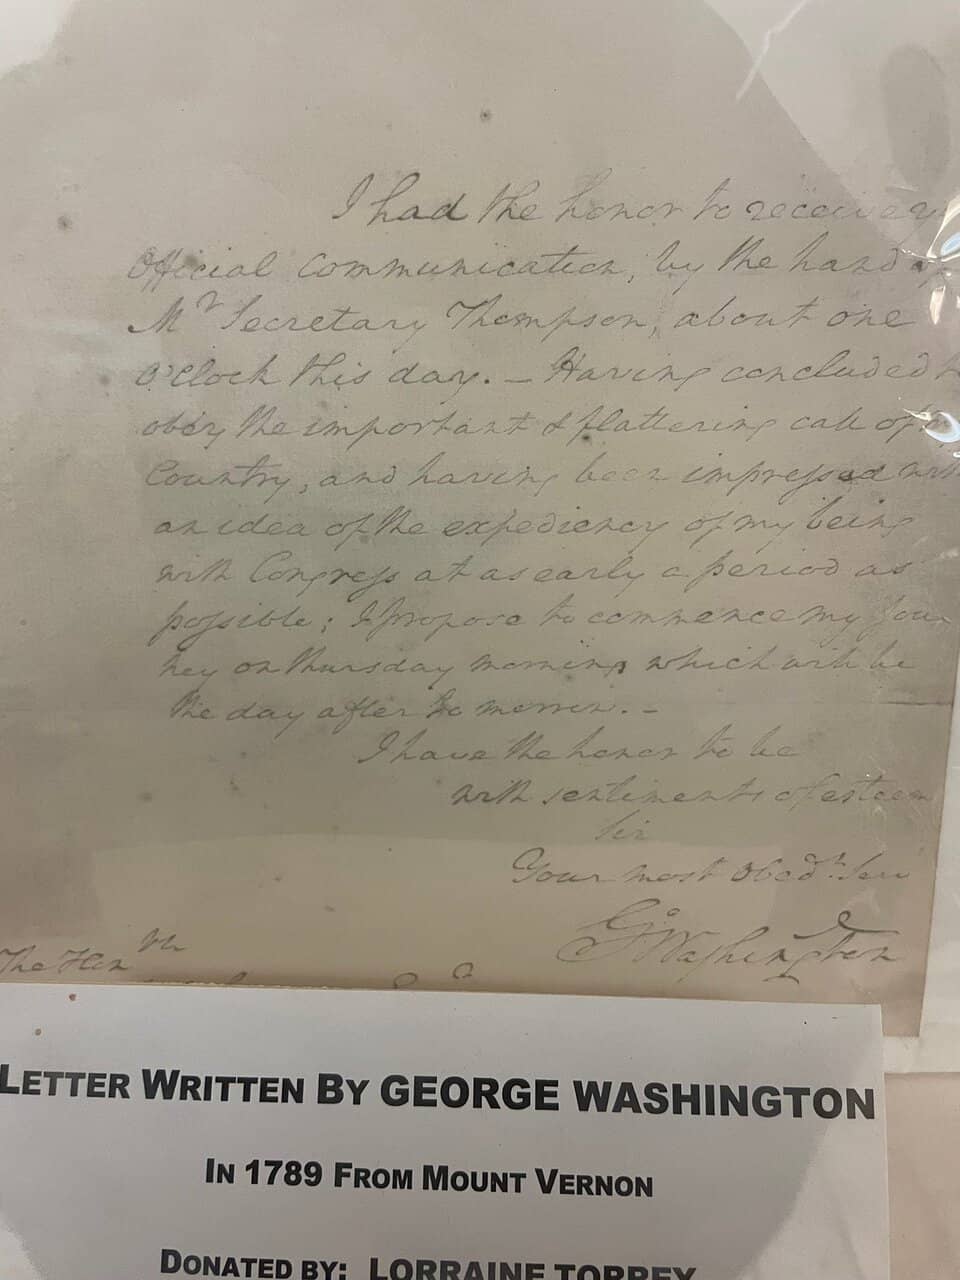 I had the honor to receive y
Official Communication, by the hand of
Mr Secretary Thompson, about one
o'Clock this day. — Having concluded t
obey the important & flattering call of
Country, and having been impressed with
an idea of the expediency of my being
with Congress at as early a period as
possible; I propose to commence my jour
ney on thursday morning which will be
the day after to morrow. —
I have the honor to be
with sentiments of esteem
Sir
Your most Obedt Serv
Go Washington
The Honble
LETTER WRITTEN BY GEORGE WASHINGTON
IN 1789 FROM MOUNT VERNON
DONATED BY: LORRAINE TORREY